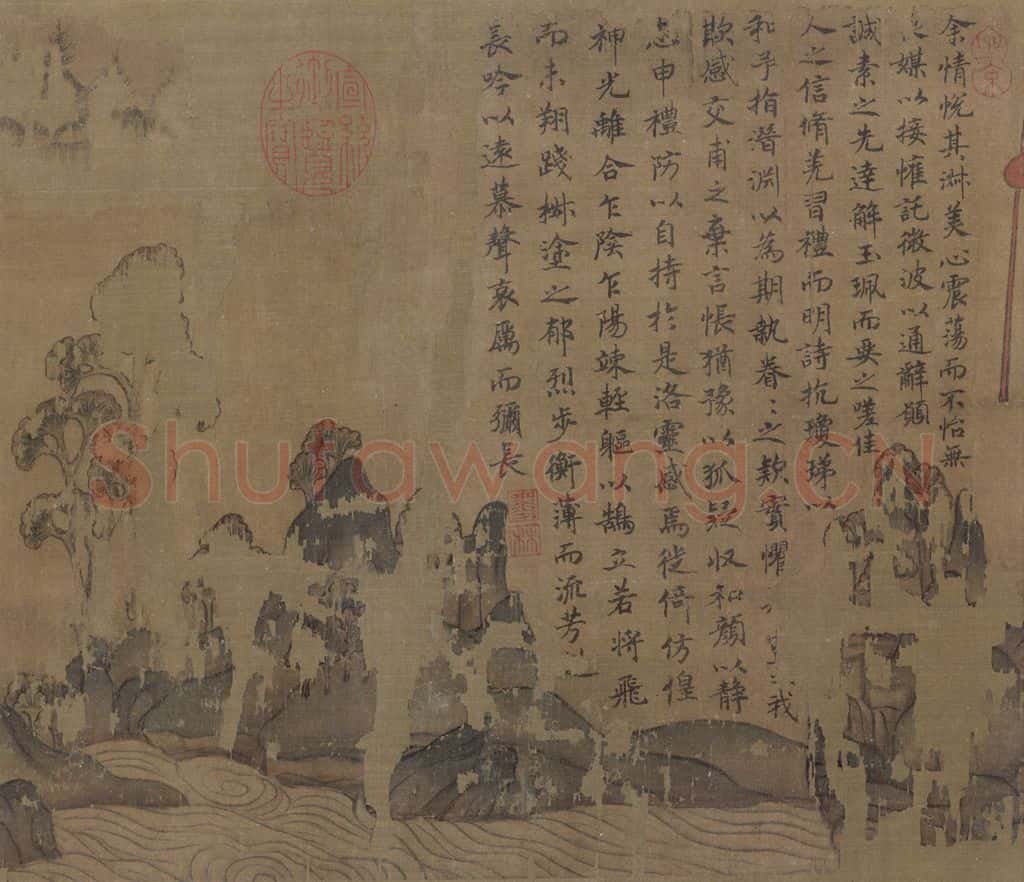 余情悅其淋美心震蕩而不怡無
媒以接懽託微波以通辭願
誠素之先達解玉珮而要之嗟佳
人之信脩羌習禮而明詩抗瓊珶以
和予指潛淵以為期執眷〻之款實懼我
欺感交甫之棄言悵猶豫以狐疑収和顏以静
志申禮防以自持於是洛靈感焉徙倚仿偟
神光離合乍陰乍陽竦輕軀以鵠立若將飛
而未翔踐椒塗之郁烈步衡薄而流芳
長吟以遠慕聲哀厲而彌長
宣統御覽之寶
Shufawang.CN